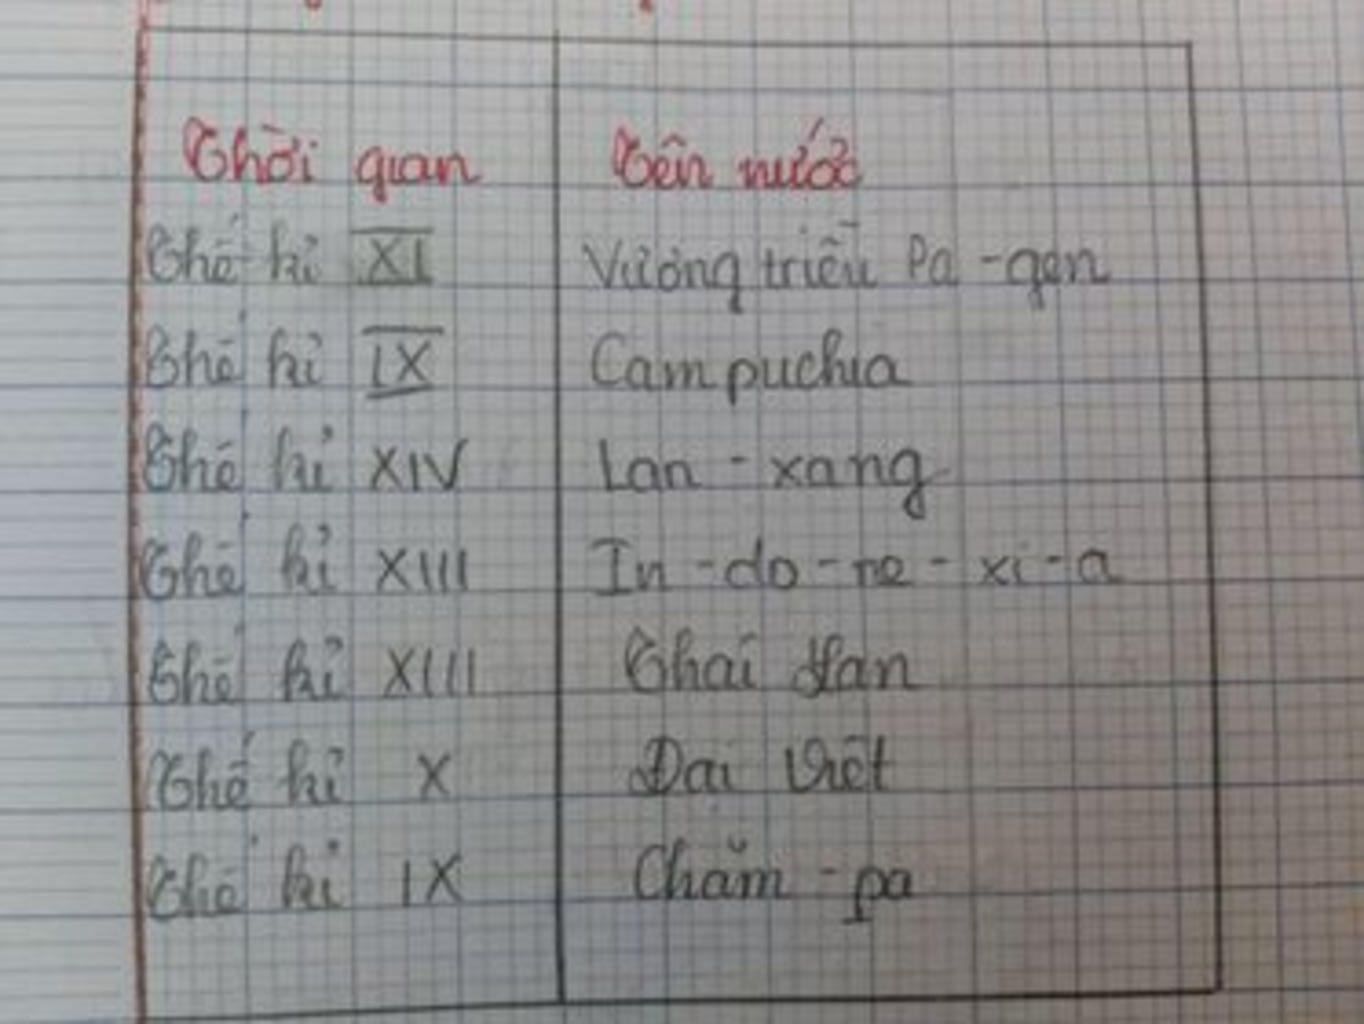 Thời gian Tên nước
Thế kỉ XI Vương triều Pa-gan
Thế kỉ IX Campuchia
Thế kỉ XIV Lan-xang
Thế kỉ XIII In-do-ne-xi-a
Thế kỉ XIII Thái Lan
Thế kỉ X Đại Việt
Thế kỉ IX Chăm-pa